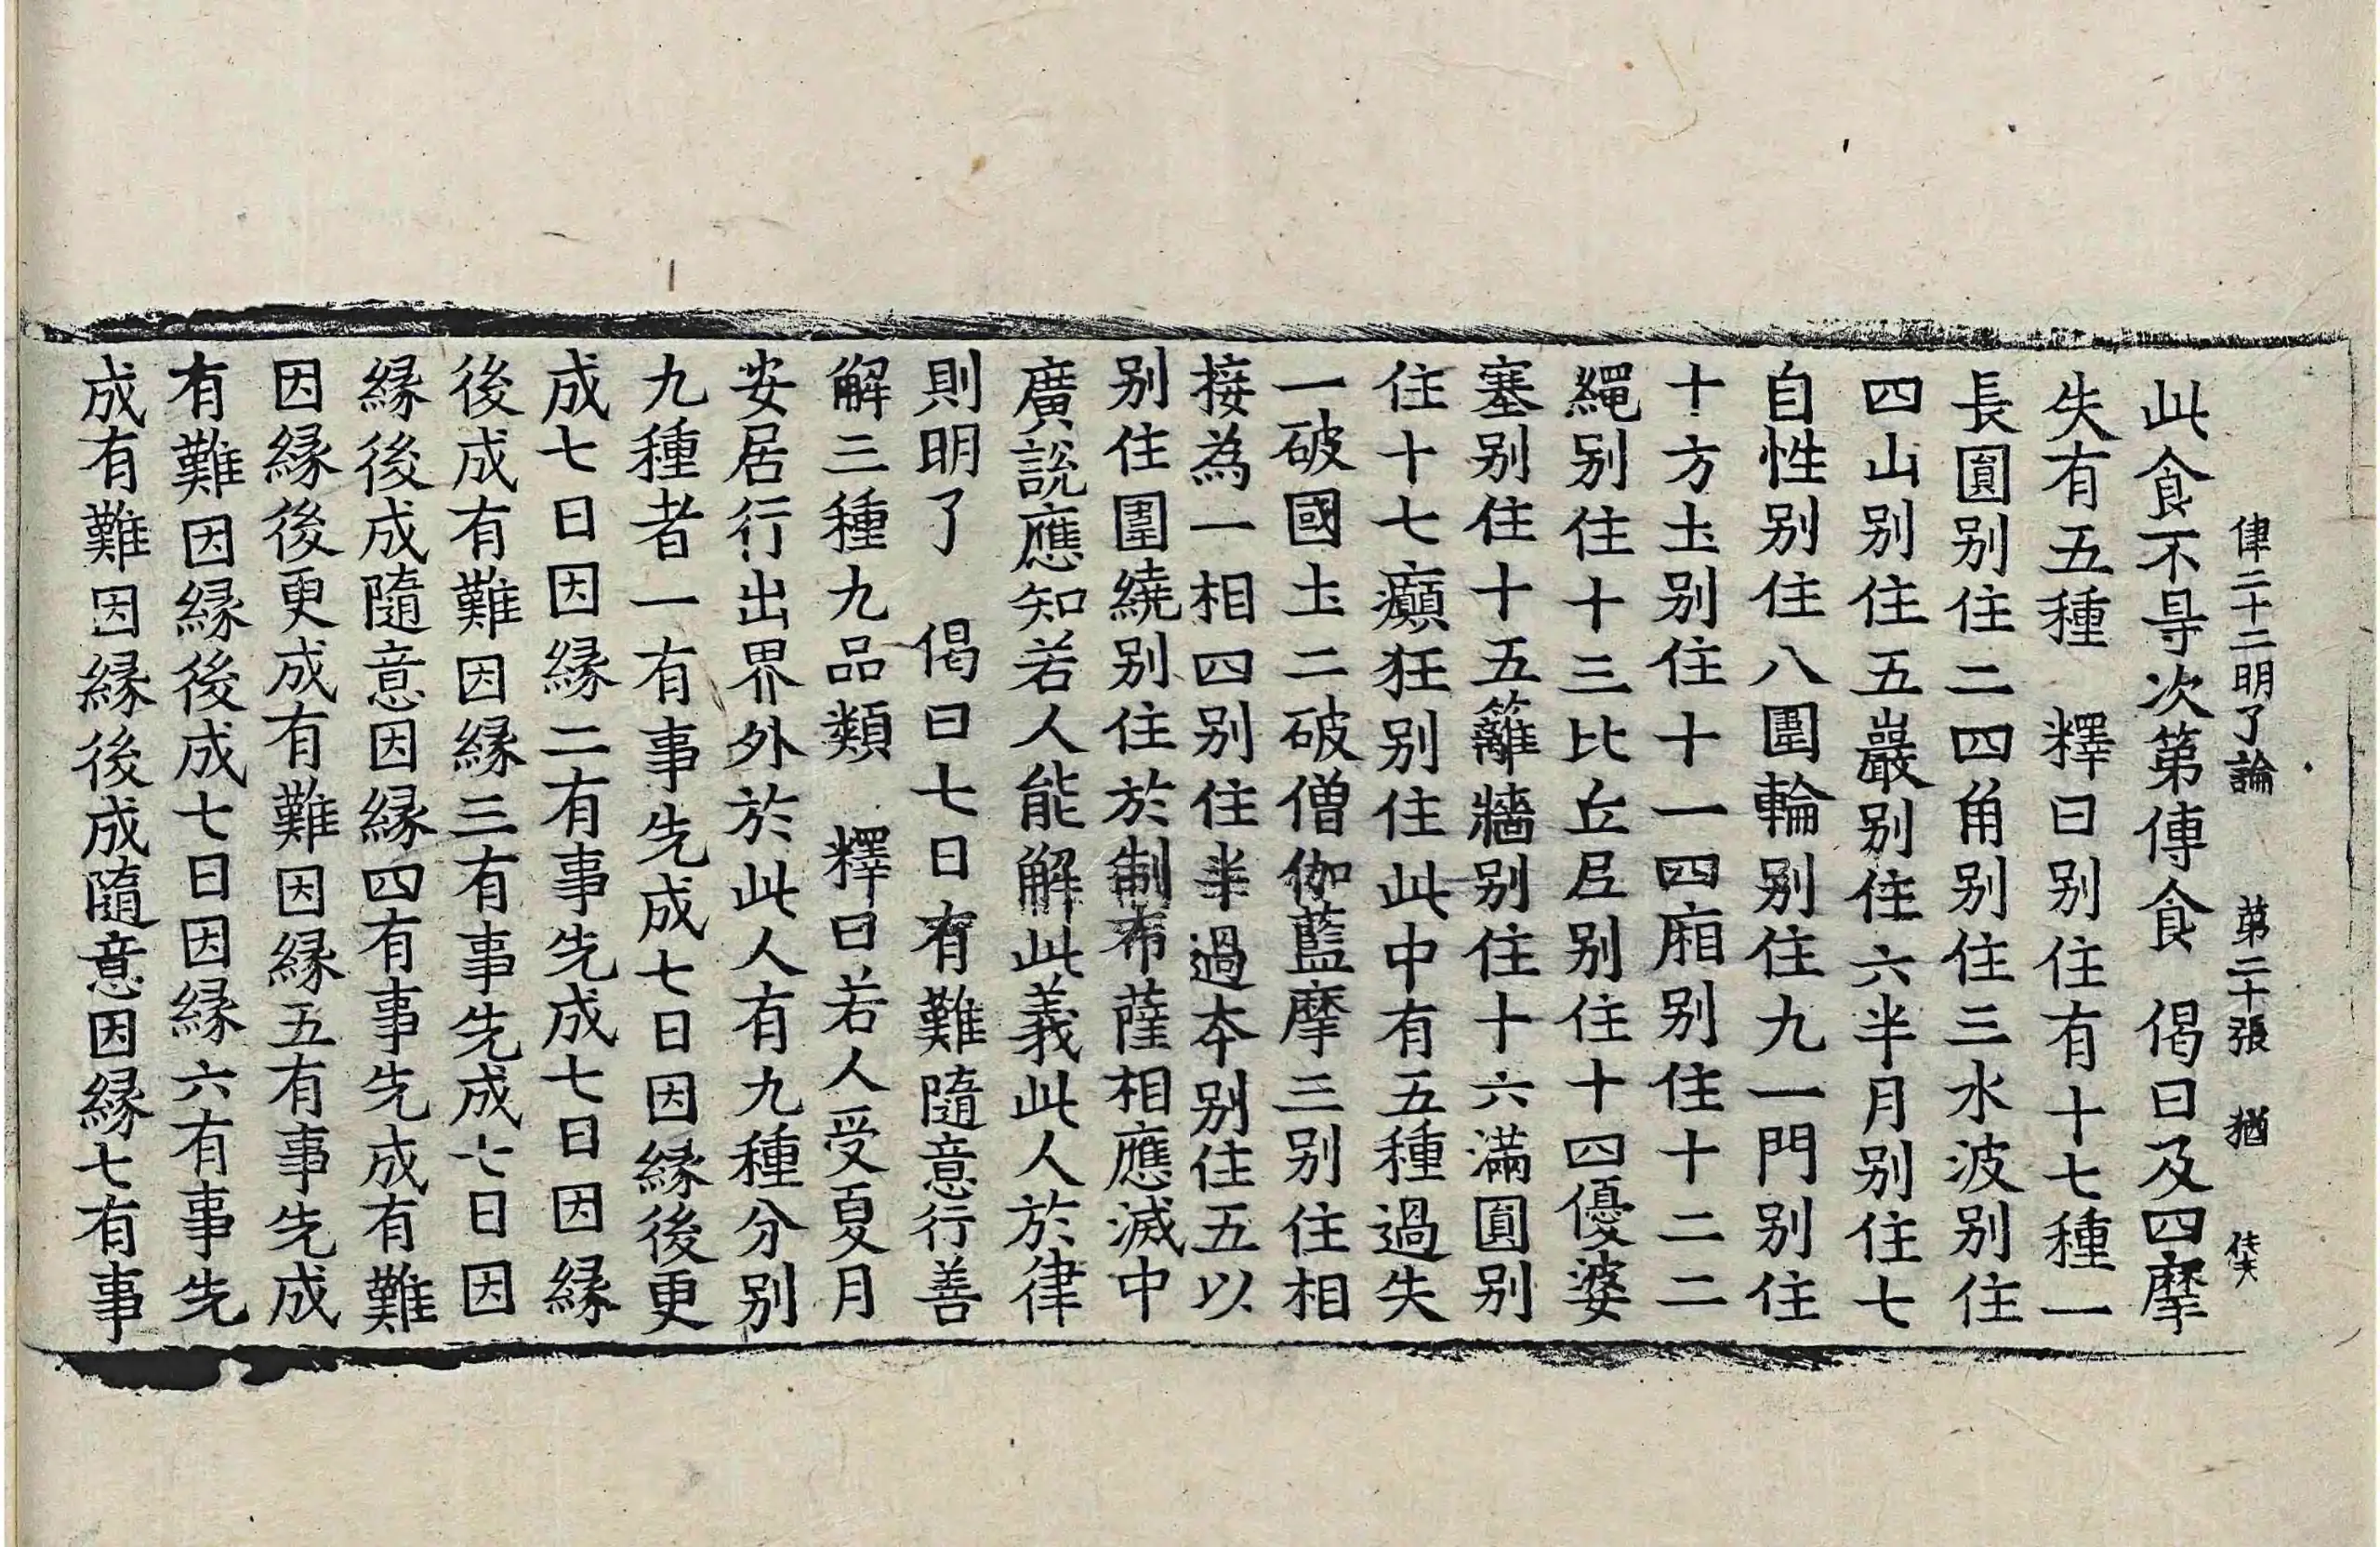 律二十二明了論 第二十張 猶
此食不㝵次第傳食 偈曰及四摩
失有五種 釋曰别住有十七種一
長圓别住二四角别住三水波别住
四山别住五巖别住六半月别住七
自性别住八圍輪别住九一門别住
十方土别住十一四廂别住十二二
繩别住十三比丘𡰱别住十四優婆
塞别住十五籬牆别住十六滿圓别
住十七癲狂别住此中有五種過失
一破國土二破僧伽藍摩三别住相
接為一相四别住半過本别住五以
别住圍繞别住於制布薩相應滅中
廣說應知若人能解此義此人於律
則明了 偈曰七日有難隨意行善
解三種九品類 釋曰若人受夏月
安居行出界外於此人有九種分别
九種者一有事先成七日因縁後更
成七日因縁二有事先成七日因縁
後成有難因縁三有事先成七日因
縁後成隨意因縁四有事先成有難
因縁後更成有難因縁五有事先成
有難因縁後成七日因縁六有事先
成有難因縁後成隨意因縁七有事